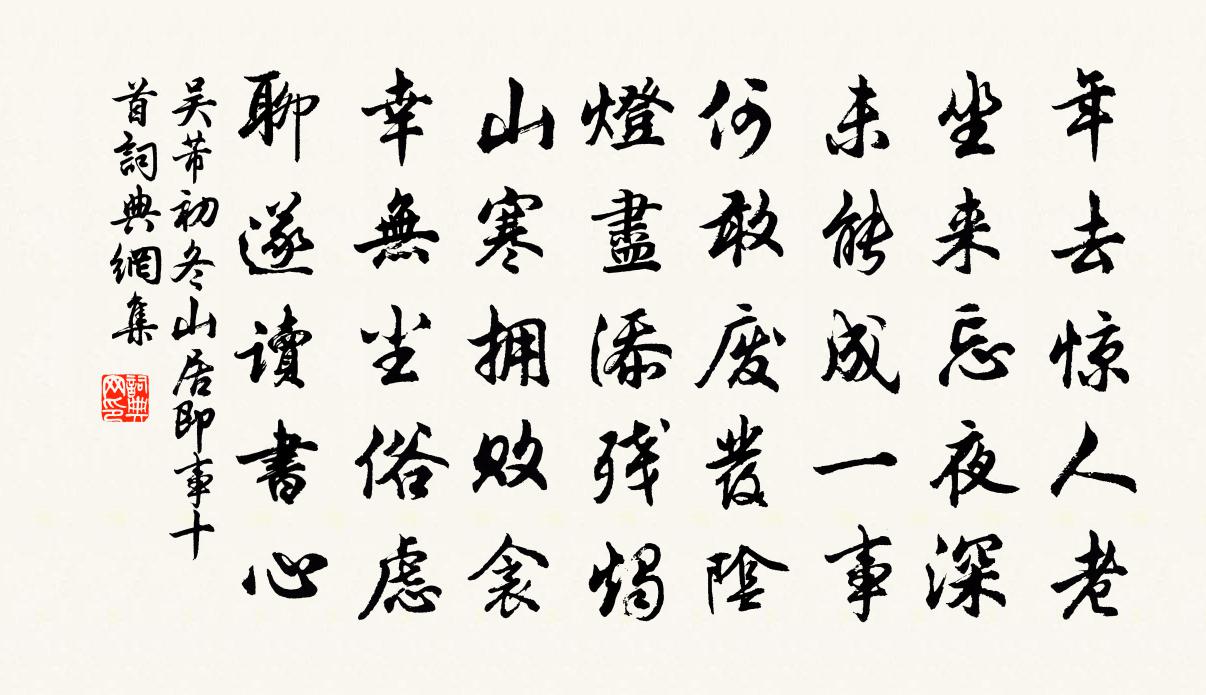 年去惊人老
坐来忘夜深
未能成一事
何敢废發陰
燈盡添残燭
山寒拥败衾
幸無尘俗慮
聊遂讀書心
吴芾初冬山居即事十
首詞典網集
詞典
网印